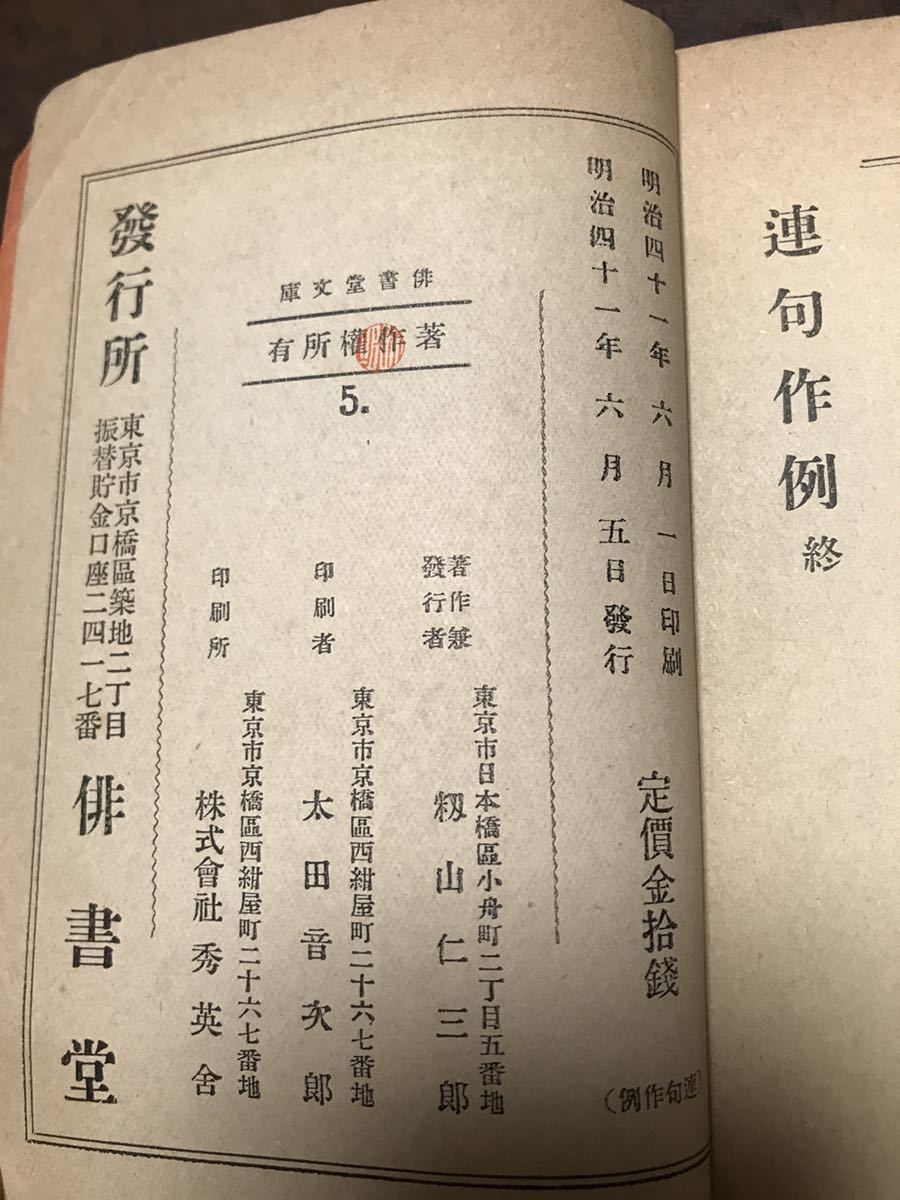 連句作例終
明治四十一年六月一日印刷
明治四十一年六月五日發行
定價金拾錢
(連句作例)
俳書堂文庫
著作權所有
5.
著作兼
發行者
東京市日本橋區小舟町二丁目五番地
籾山仁三郎
印刷者
東京市京橋區西紺屋町二十六、七番地
太田音次郎
印刷所
東京市京橋區西紺屋町二十六、七番地
株式會社秀英舍
發行所
東京市京橋區築地二丁目
振替貯金口座二四一七番
俳書堂